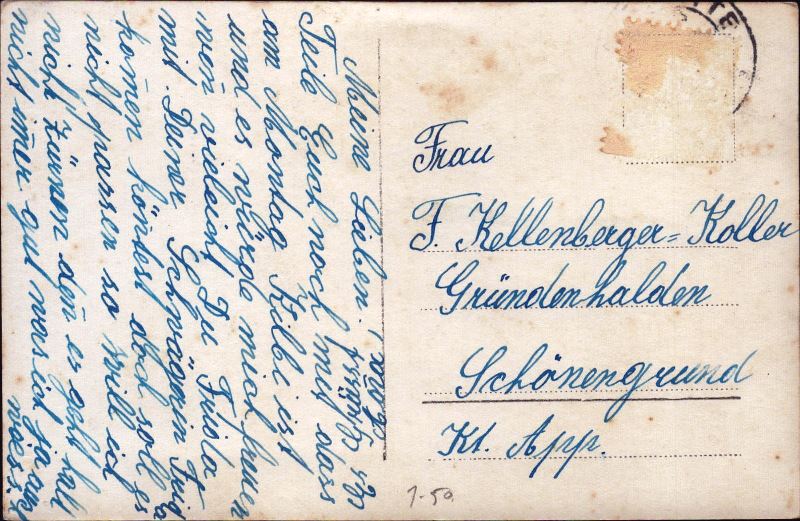 Meine Lieben.
Teile Euch noch mit dass
am Montag Kilbi ist
und es würde mich freuen
wen vieleich Du Frida
mit Deiner Schwägerin
komen köntest doch soll es
nicht passen so will ich
nicht Zürnen den es geht hal
nicht imer gut
weist
Frau
F. Kellenberger=Koller
Gründenhalden
Schönengrund
Kt. App.
1-50